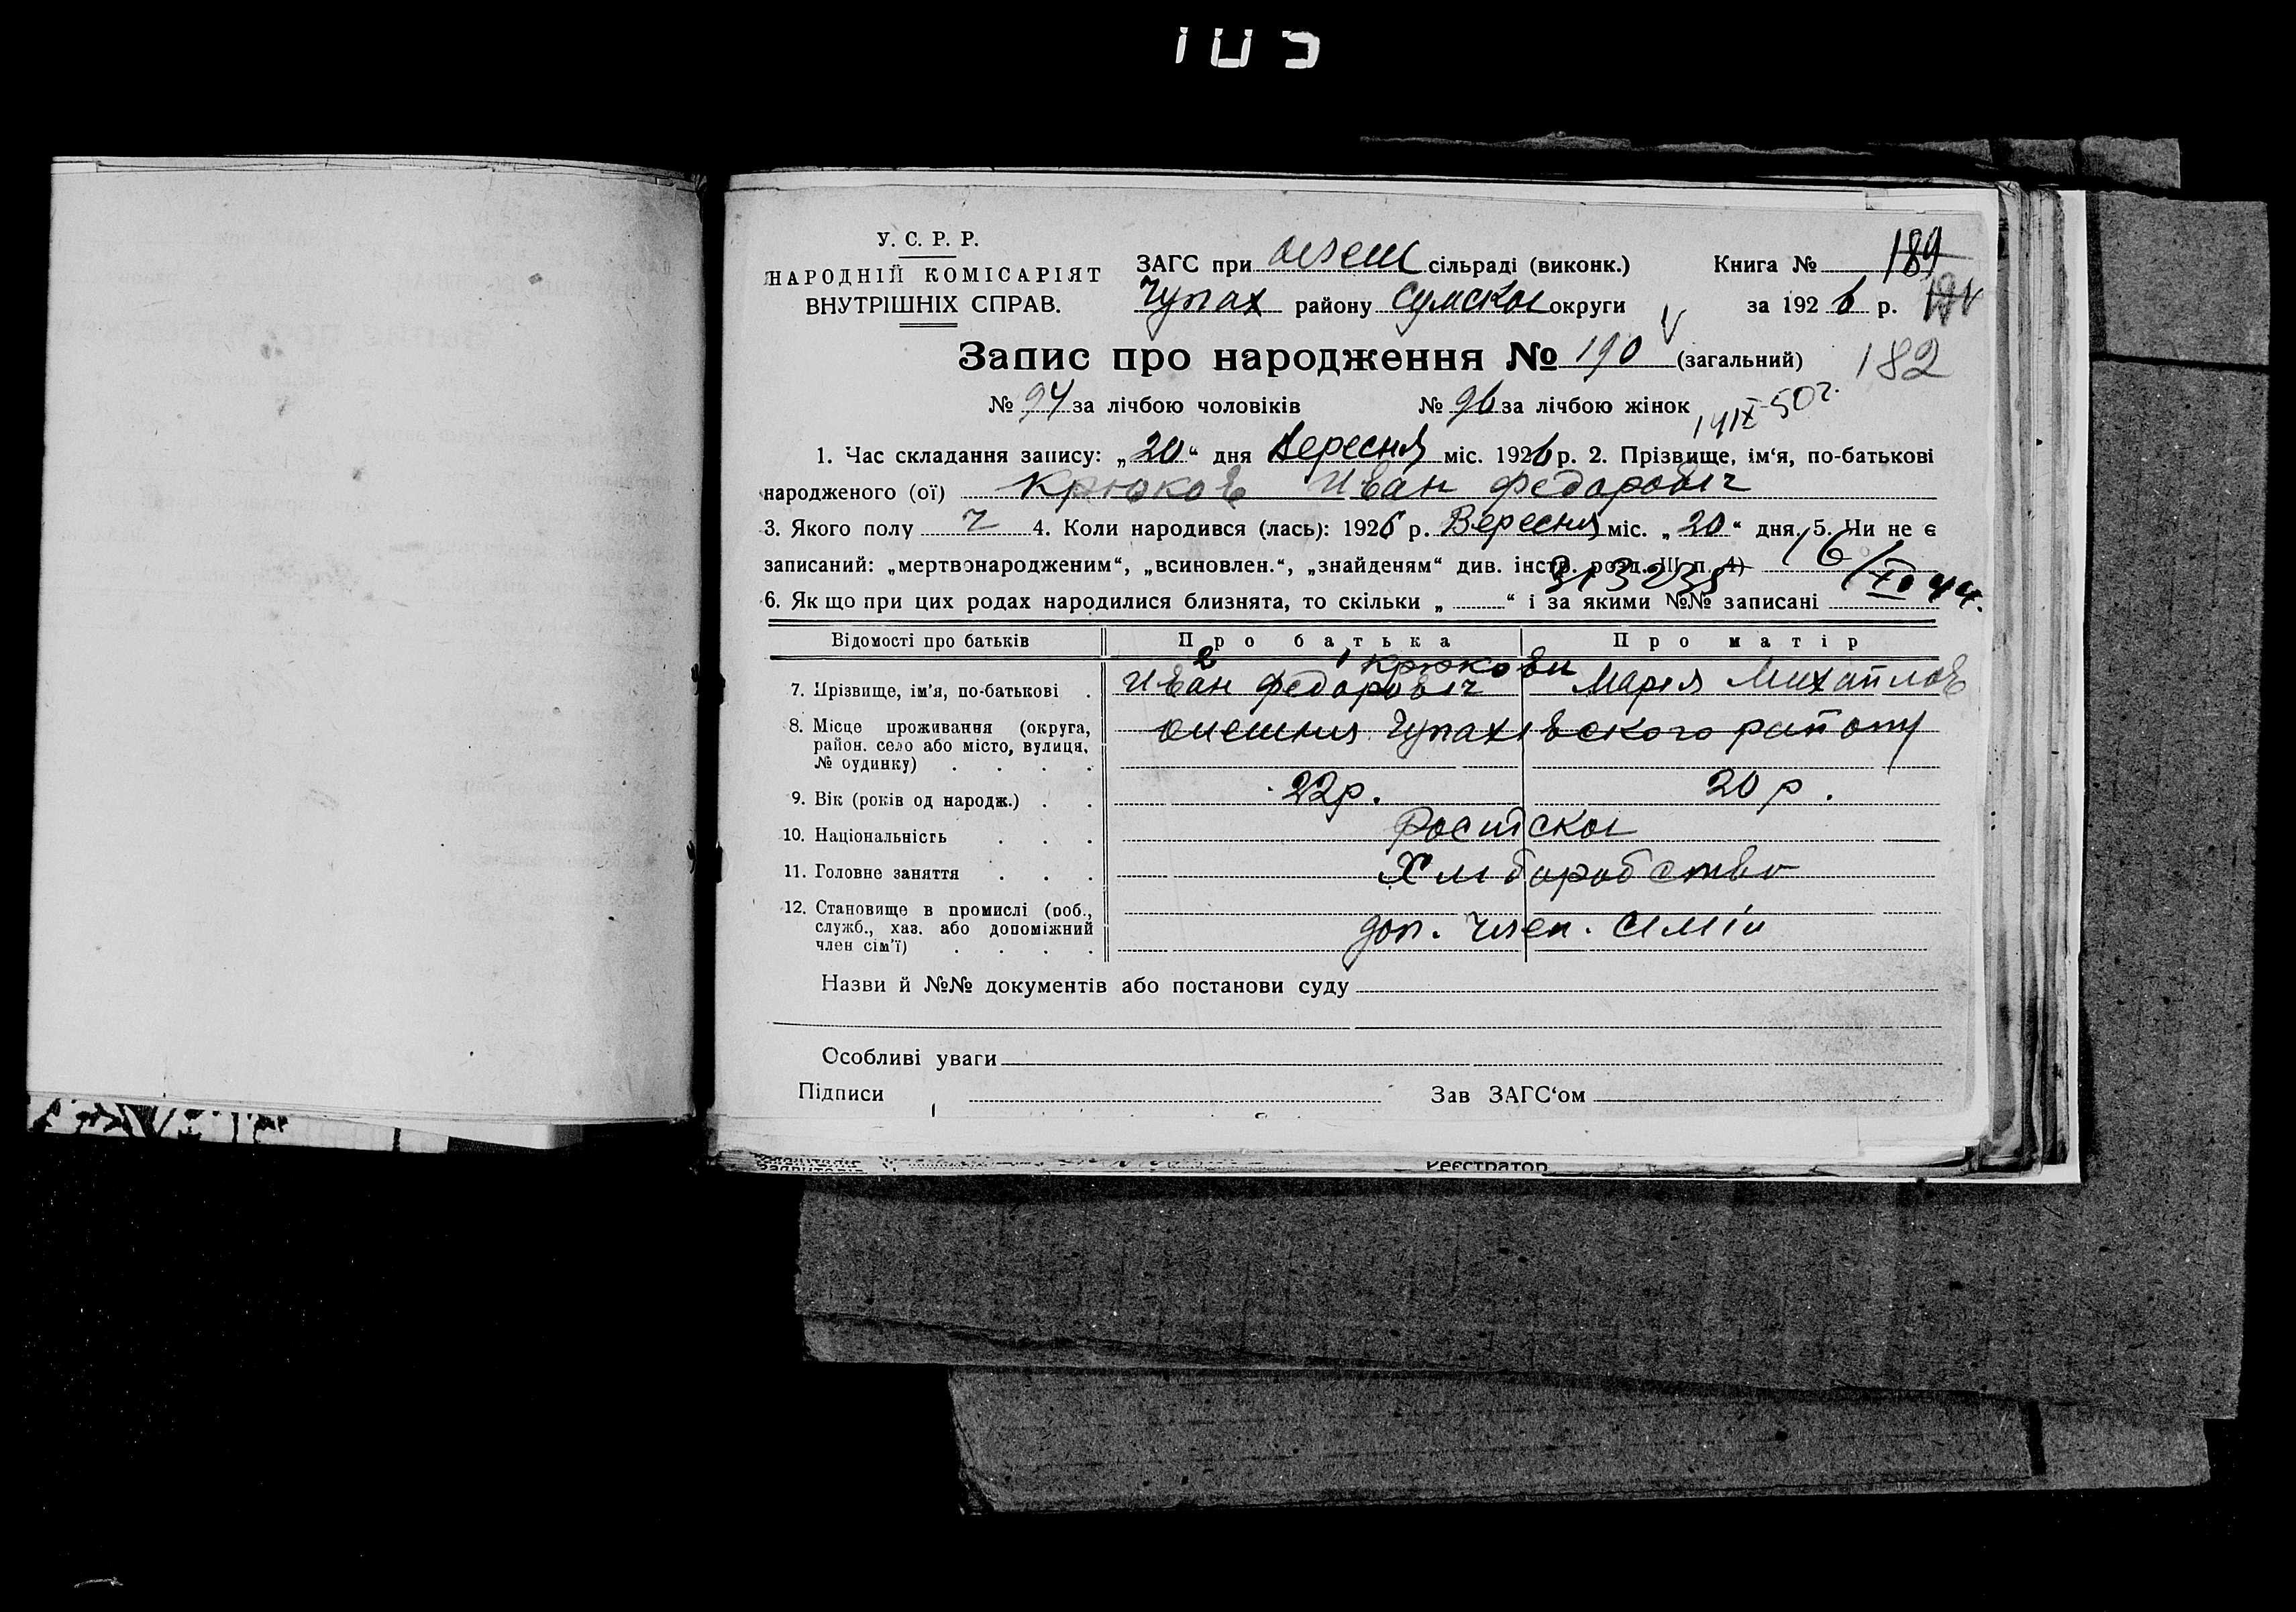 У. С. Р. Р.
НАРОДНІЙ КОМІСАРІЯТ
ВНУТРІШНІХ СПРАВ.
ЗАГС при сільраді (виконк.)
Чупах району Сумскоі округи
Книга № 189
за 1926 р.
Запис про народження № 190 (загальний) 182
№ 94 за лічбою чоловіків № 96 за лічбою жінок
14 IX 50 г.
1. Час складання запису: „20“ дня Вересня міс. 1926 р. 2. Прізвище, ім‘я, по-батькові
народженого (ої) Крюков Иван Федоровіч
3. Якого полу ч 4. Коли народився (лась): 1926 р. Вересня міс. „20“ дня. 5. Чи не є
записаний: „мертвонародженим“, „всиновлен.“, „знайденям“ див. інстр. розд. III п. 4)
6. Якщо при цих родах народилися близнята, то скільки „ “ і за якими №№ записані
Відомості про батьків Про батька Про матір
Крюкови
7. Прізвище, ім‘я, по-батькові . Иван Федоровіч Марія Михайлов
8. Місце проживання (округа, район. село або місто, вулиця, № будинку) . . . . Олешня Чупахівского району
9. Вік (років од народж.) . . 22 р. 20 р.
10. Національність . . . Росийскоі
11. Головне заняття . . . Хліборобство
12. Становище в промислі (роб., служб., хаз. або допоміжний член сім‘ї) . . . . доп. член. сімїи
Назви й №№ документів або постанови суду
Особливі уваги
Підписи Зав ЗАГС‘ом
Реєстратор